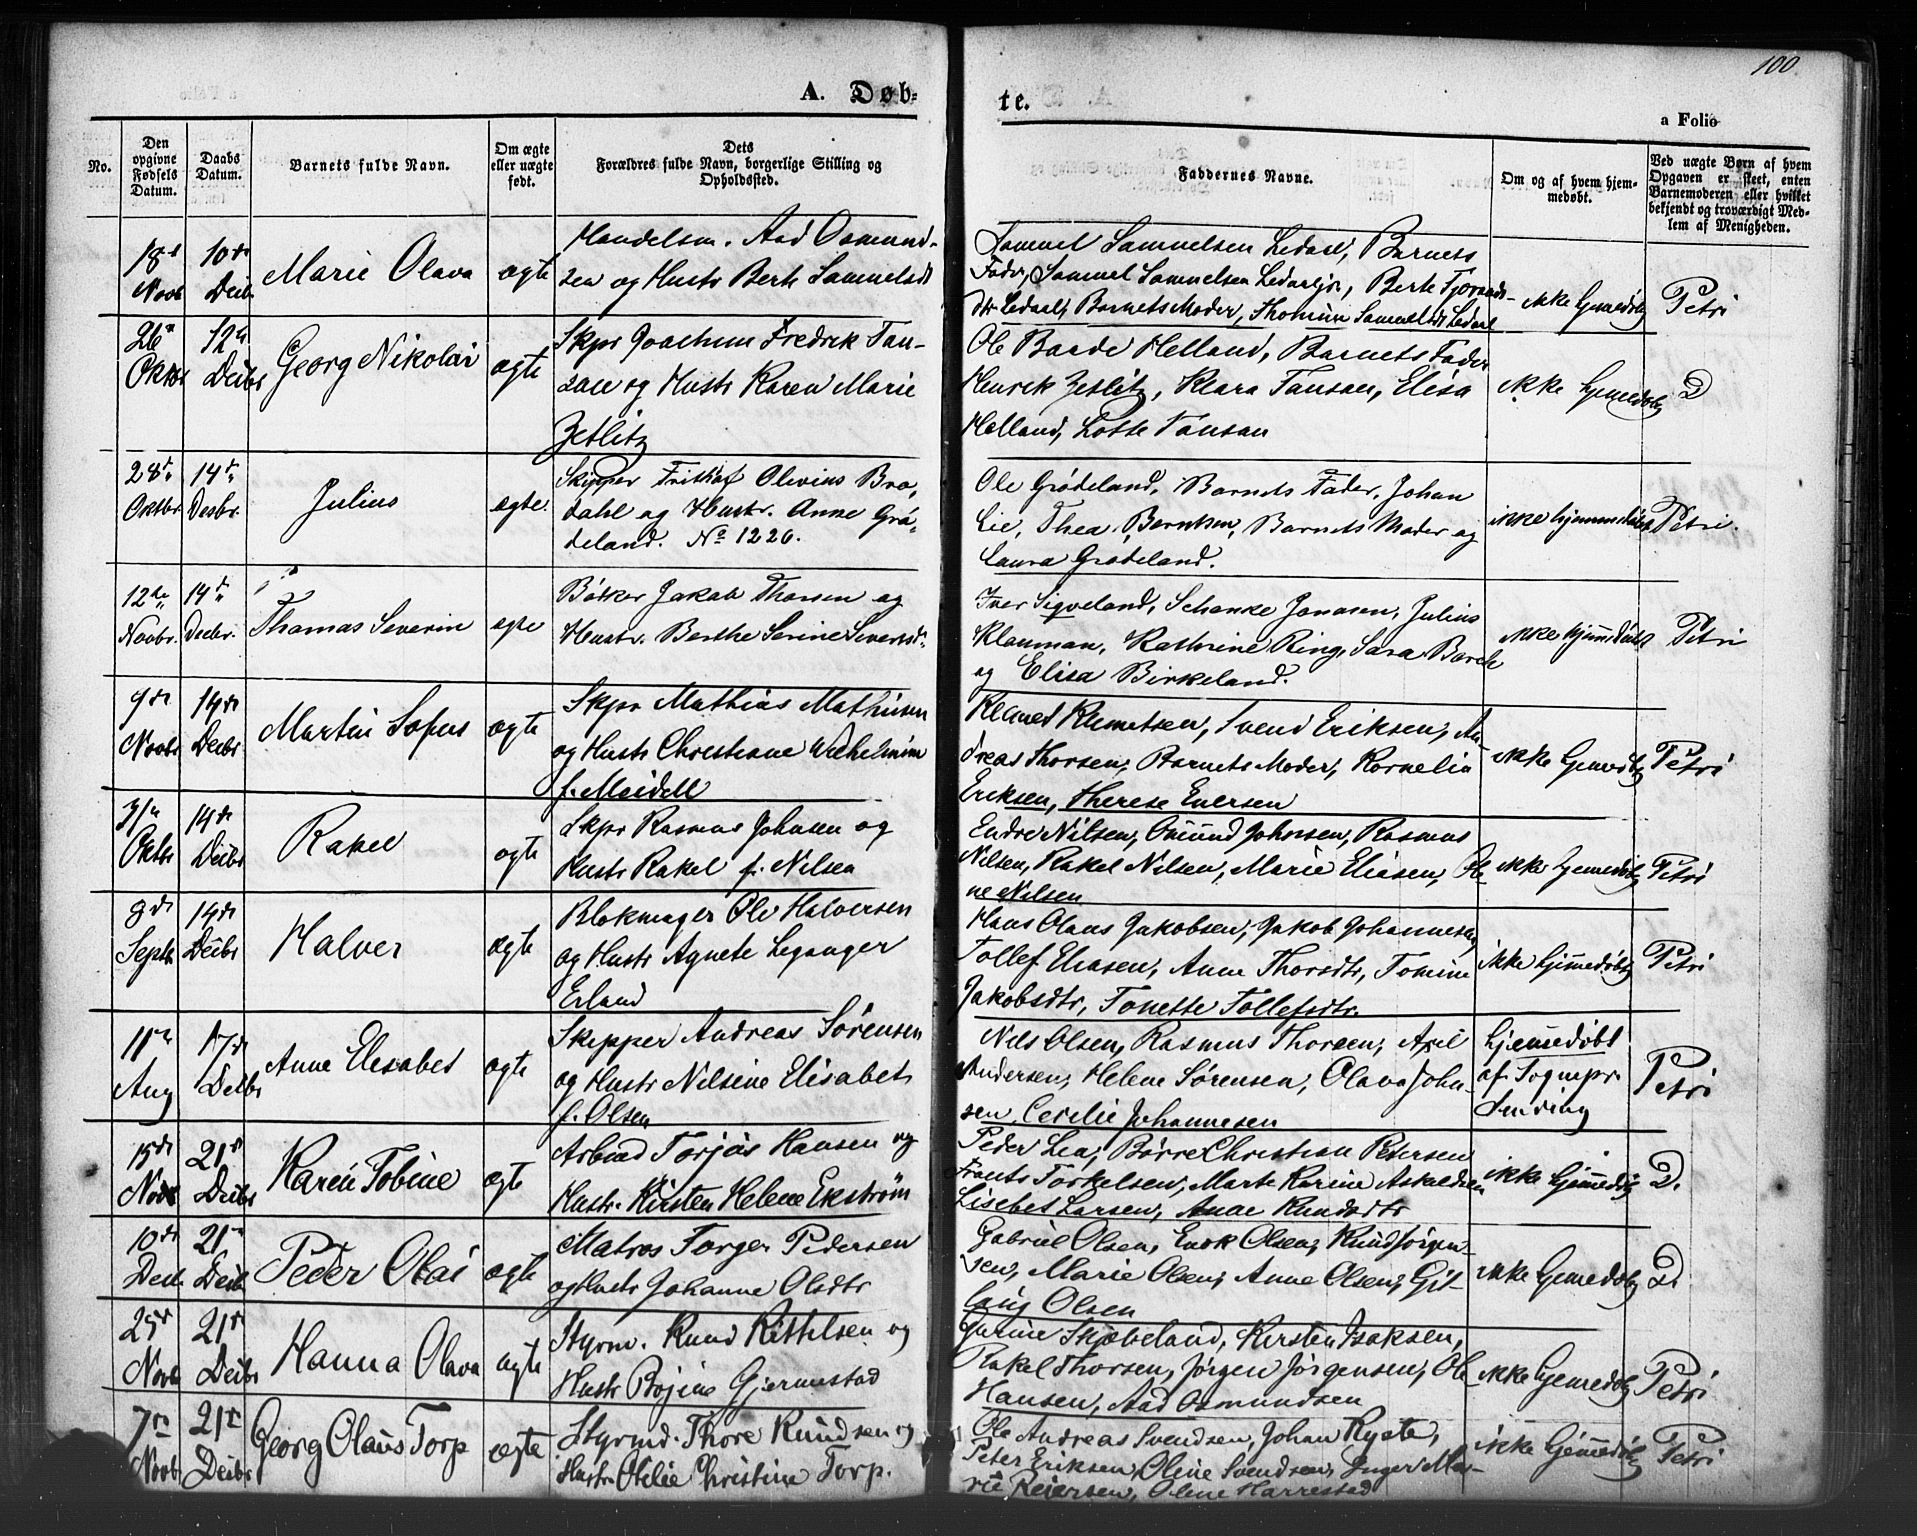 100
A. Døb-
te.
a Folio
No.
Den opgivne Fødsels Datum.
Daabs Datum.
Barnets fulde Navn.
Om ægte eller uægte født.
Dets
Forældres fulde Navn, borgerlige Stilling og
Opholdssted.
Faddernes Navne.
Om og af hvem hjem-
medøbt.
Ved uægte Børn af hvem
Opgaven er skeet, enten
Barnemoderen eller hvilket
bekjendt og troværdigt Med-
lem af Menigheden.
18de Novb
10de Decbr
Marie Olava
ægte
Handelsm. Aad Osmund-
sen og Hustr Berte Samuelsdt
Samuel Samuelsen Ledaal, Barnets
Fader, Samuel Samuelsen Ledaal jr, Berte
Dtr Ledaal, Barnets Moder, Thomine Samuelsdt Ledaal
ikke hjemedøbt
Petri
26de Oktbr
12te Decbr
Georg Nikolai
ægte
Skpr Joachum Fredrik Tan-
sen og Hustr Karen Marie
Zetlitz
Ole Barde Helland, Barnets Fader
Henrik Zetlitz, Klara Tansen, Elisa
Helland, Lotte Tansen
ikke hjemedøbt
D
28de Oktbr
14de Desbr.
Julius
ægte.
Skipper Frithiof Olivius Bro-
dahl og Hustr. Anne Grø-
deland. No 1226.
Ole Grødeland, Barnets Fader, Johan
Lie, Thea Berntsen, Barnets Moder og
Laura Grødeland.
ikke hjemmedøbt
Petri.
12te Novbr.
14de Decbr.
Thomas Severin
ægte
Bøsker Jakob Thorsen og
Hustr. Berthe Serine Sivertsdt.
Iver Sigveland, Schanke Jonasen, Julius
Klauman, Kathrine Ring, Sara Barck
og Elisa Birkeland.
ikke hjemedøbt
Petri
9de Novbr
14de Decbr
Martin Sofus
ægte
Skpr Mathias Mathisen
og Hustr Christiane Wilhelmine
f. Meidell
Klaned Klemetsen, Svend Eriksen, An-
dreas Thorsen, Barnets Moder, Kornelia
Eriksen, Therese Eversen
ikke hjemedøbt
Petri
31te Oktbr
14de Decbr
Rakel
ægte
Skpr Rasmus Johnsen og
Hustr Rakel f. Nilsen
Endre Nilsen, Osmund Johnsen, Rasmus
Nilsen, Rakel Nilsen, Marie Eliasen, Ol-
ine Nilsen
ikke hjemedøbt
Petri
8de Septbr
14de Decbr
Halver
ægte
Blokmager Ole Halversen
og Hustr Agnete Leganger
Erland
Hans Olaus Jakobsen, Jakob Johannesen,
Tollef Eliasen, Anne Thorsdtr, Tomine
Jakobsdtr, Tonette Tollefsdtr.
ikke hjemedøbt
Petri
11te Aug
17de Decbr
Anne Elisabet
ægte
Skipper Andreas Sørensen
og Hustr Nilsine Elisabet
f. Olsen
Nils Olsen, Rasmus Thorsen, Axil
Andersen, Helene Sørensen, Olava John-
sen, Cecilie Johannesen
hjemedøbt
af Sognepr.
Petri
15de Novb
21de Decbr
Karen Tobine
ægte
Arbmd Torjus Hansen og
Hustr. Kirsten Helene Ekstrøm
Peder Lea, Børre Christian Petersen
Frants Torkelsen, Marte Karine Askeldsen
Lisebet Larsen, Anne Knudsdtr
ikke hjemedøbt
D.
10de Decb
21de Decbr
Peder Olai
ægte
Matros Torger Pedersen
og Hustr Johanne Olsdtr
Gabriel Olsen, Enok Olsen, Knud Jørgen-
sen, Marie Olsen, Anne Olsen, Git-
laug Olsen
ikke hjemedøbt
D.
25de Novb
21de Decbr
Hanna Olava
ægte
Styrm. Knud Kittelsen og
Hustr Bojine Gjermestad
Gurine Skjæbeland, Kirsten Isaksen,
Rakel Thorsen, Jørgen Jørgensen, Ole
Hansen, Aad Osmundsen
ikke hjemedøbt
Petri
7de Novb
21de Decbr
Georg Olaus Torp
ægte
Styrmd. Thore Knudsen og
Hustr. Otelie Christine Torp.
Ole Andreas Svendsen, Johan Kyste,
Peter Eriksen, Oline Svendsen, Inger Ma-
rie Reiersen, Olene Harrestad
ikke hjemedøbt
Petri